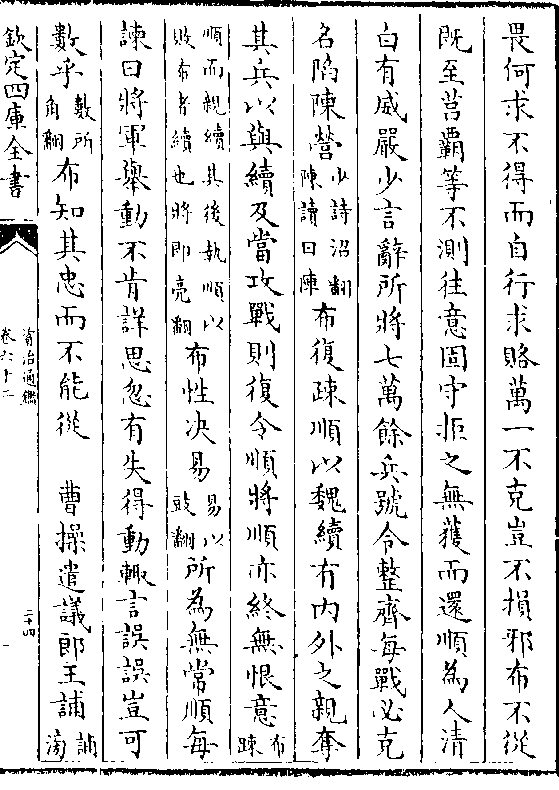 畏何求不得而自行求賂萬一不克豈不損邪布不從
既至莒霸等不測往意固守拒之無獲而還順為人清
白有威嚴少言辭所將七萬餘兵號令整齊每戰必克
名陷陳營少詩沼翻陳讀曰陣布復疎順以魏續有内外之親奪
其兵以與續及當攻戰則復令順將順亦終無恨意布疎
順而親續其後執順以敗布者續也將即亮翻布性决易易以豉翻所為無常順每
諫曰將軍舉動不肯詳思忽有失得動輒言誤誤豈可
數乎數所角翻布知其忠而不能從 曹操遣議郎王誧誧滂
欽定四庫全書
資治通鑑
卷六十二
二十四